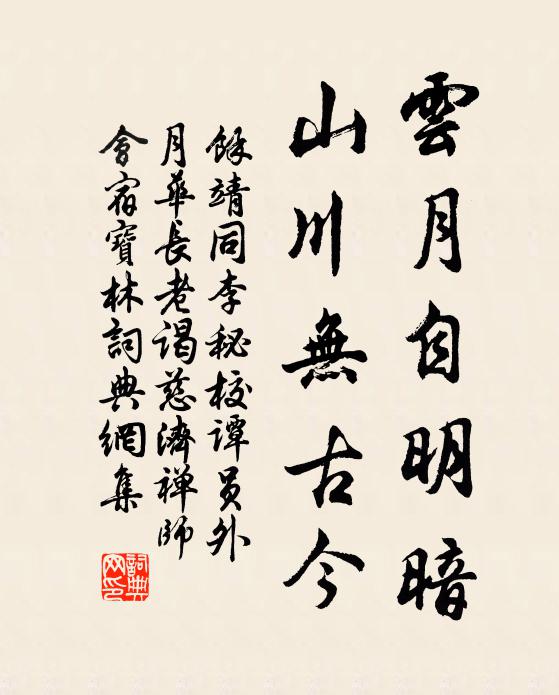 雲月自明暗
山川無古今
餘靖同李秘校譚員外
月華長老謁慈濟禅師
會宿寶林詞典網集
詞典網印